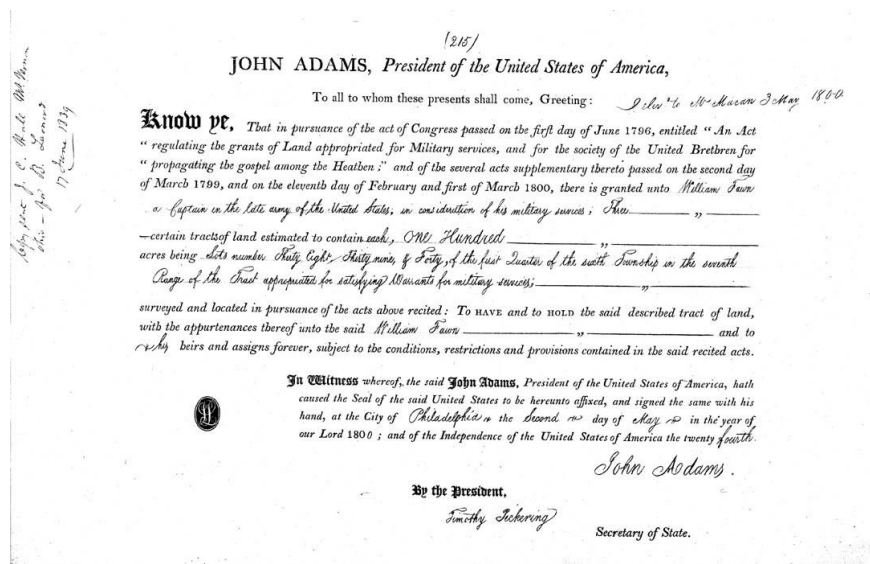 (215)
JOHN ADAMS, President of the United States of America,
To all to whom these presents shall come, Greeting: Mc Macan 3 May 1800
Know ye, That in pursuance of the act of Congress passed on the first day of June 1796, entitled “ An Act
“ regulating the grants of Land appropriated for Military services, and for the society of the United Brethren for
“ propagating the gospel among the Heathen ;” and of the several acts supplementary thereto passed on the second day
of March 1799, and on the eleventh day of February and first of March 1800, there is granted unto William Fawn
a Captain in the late army of the United States, in consideration of his military services ; Three ——— „ ———
—certain tracts of land estimated to contain each, One Hundred ——— „ ———
acres being Lots number Thirty Eight, Thirty nine, & Forty, of the first Quarter of the sixth Township in the seventh
Range of the Tract appropriated for satisfying Warrants for military services; ——— „ ———
surveyed and located in pursuance of the acts above recited : To HAVE and to HOLD the said described tract of land,
with the appurtenances thereof unto the said William Fawn ——— „ ——— and to
his heirs and assigns forever, subject to the conditions, restrictions and provisions contained in the said recited acts.
In Witness whereof, the said John Adams, President of the United States of America, hath
caused the Seal of the said United States to be hereunto affixed, and signed the same with his
hand, at the City of Philadelphia the Second day of May in the year of
our Lord 1800 ; and of the Independence of the United States of America the twenty fourth.
John Adams.
By the President,
Timothy Pickering
Secretary of State.
Copy sent J. C. Hall Mt Vernon
Ohio – for D. Leonard
17 June 1839